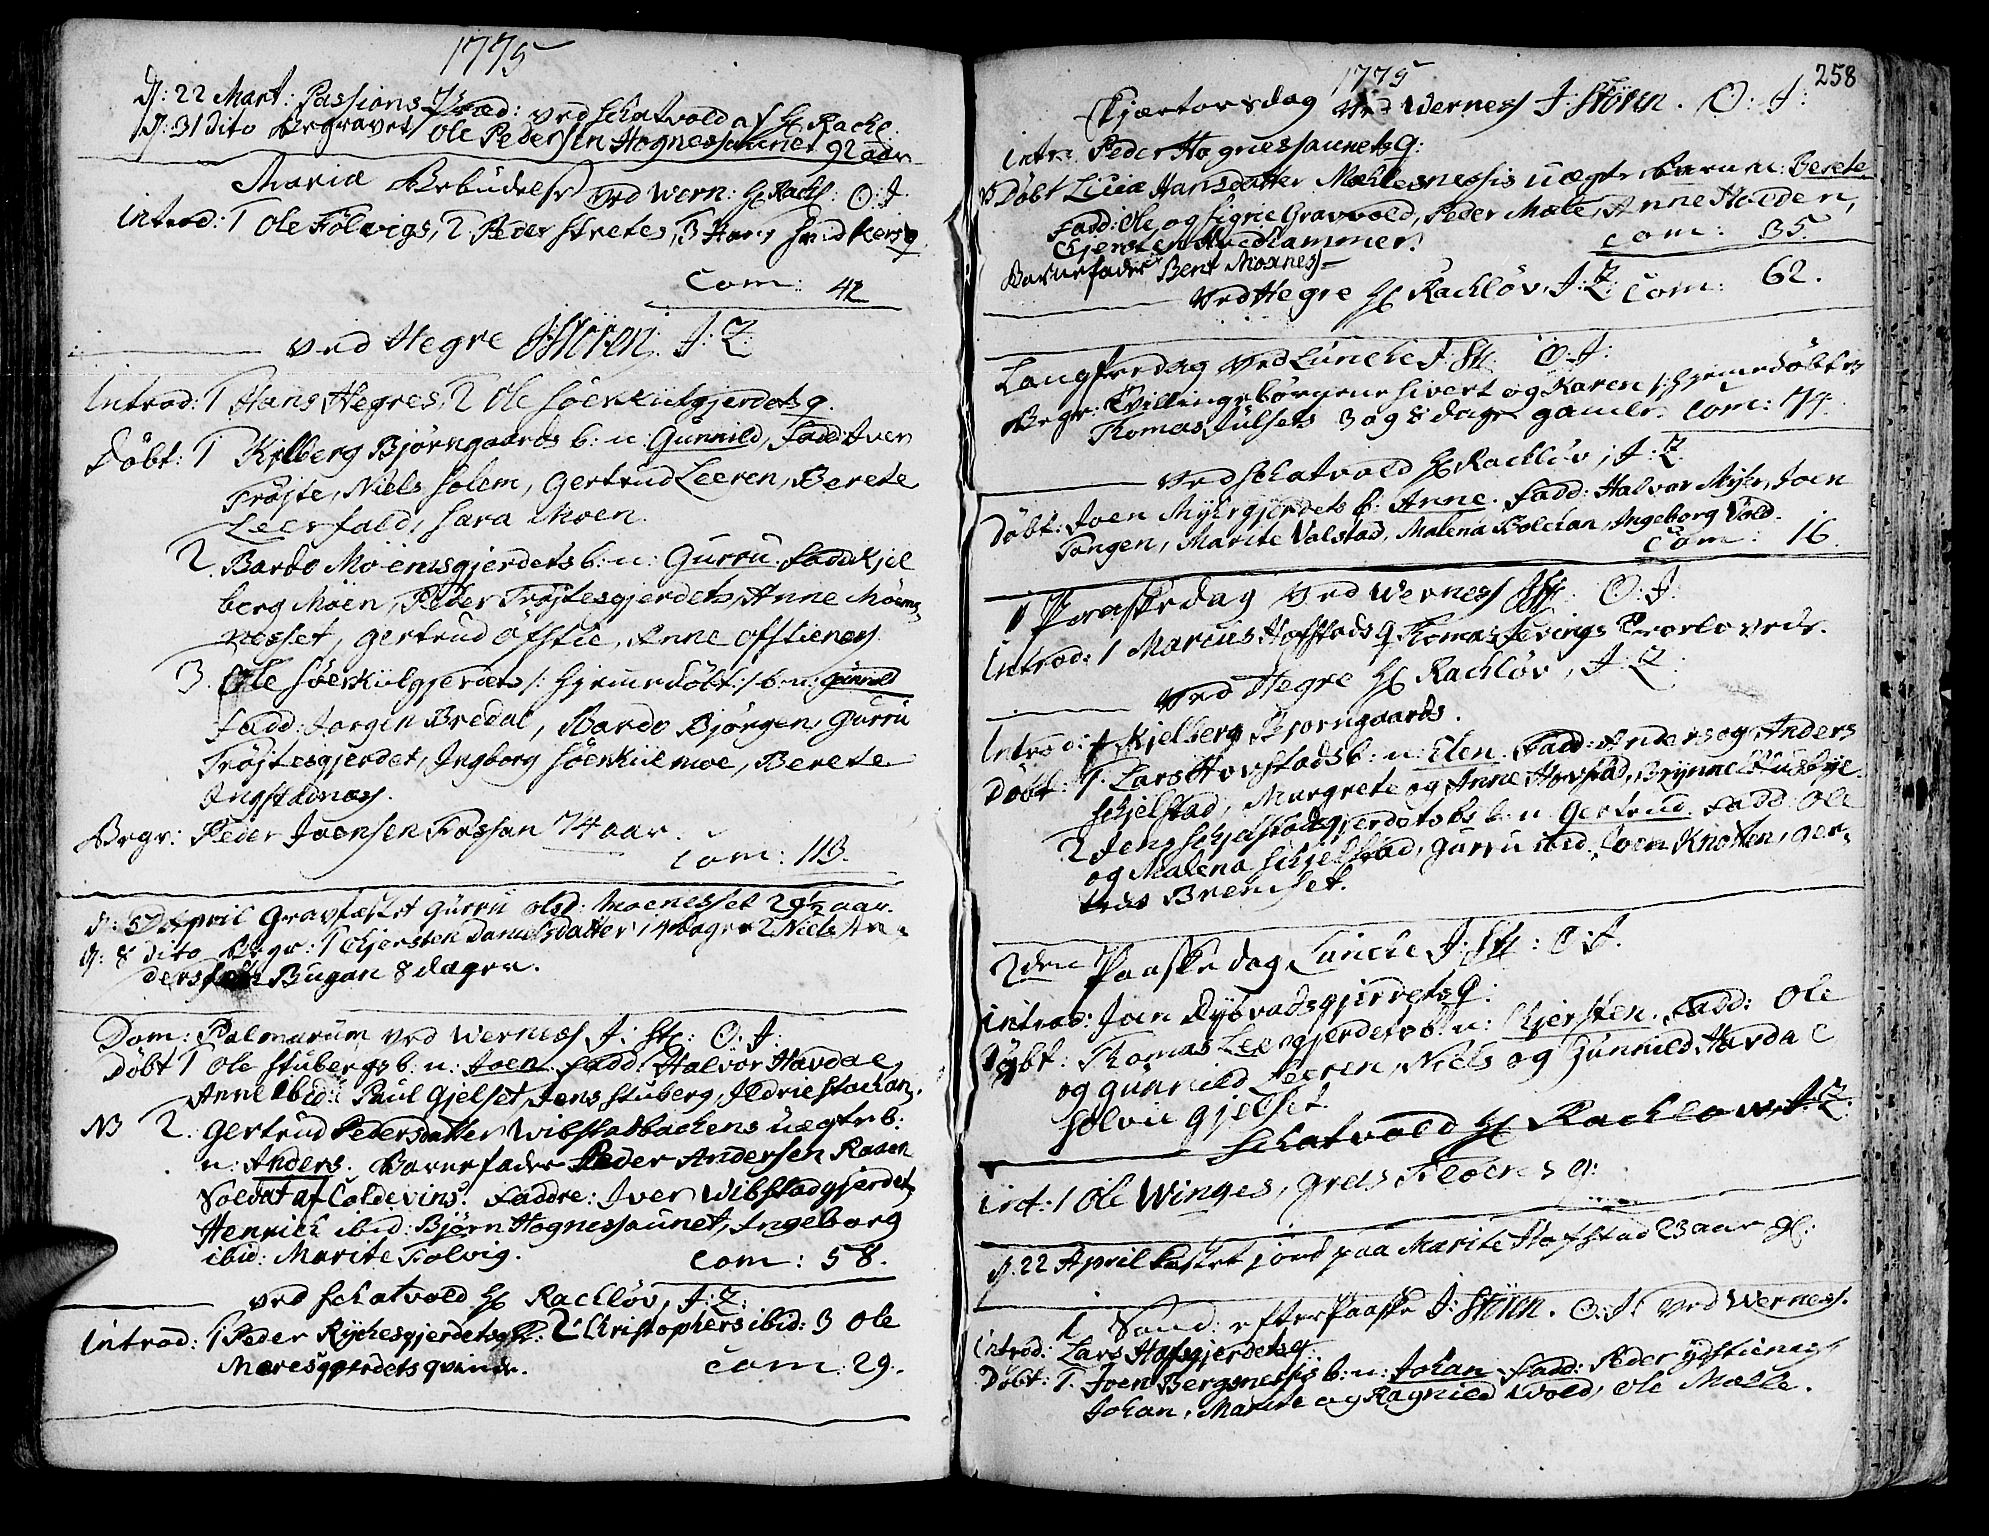 1775
d: 22 Mart: Passions Præd: ved Schatvold af H Rachl.
d: 31 dito Begravet Ole Pedersen Hognessaunet 92 aar
Mariæ Bebudelse ved Wern: H Rachl: O: J
Introd: 1 Ole Fölvigs, 2 Peder Stretes, 3 Hans q.
Com: 42
ved Hegre J Stören. J: Z
Introd: 1 Hans Hegres, 2 Ole Söerkiilgjerdets q.
Döbt: 1 Kjelberg Björngaards b: n: Gunnild, Fadd: Iver
Fröjte, Niels Solem, Gertrud Leeren, Berete
Leerfald, Sara Moen.
2. Bardo Möensgjerdets b: n: Gurru Fadd Kjel
berg Möen, Peder Tröjtesgjerdets, Anne Möens
nesset, Gertrud Öfstie, Anne Ofstienes
3. Ole Söerkiilgjerdets /: hjemmedöbt :/ b: n: Gunnild
Fadd: Jorgen Bredal, Bardo Björgen, Gurru
Tröjtesgjerdet, Ingborg Söerkiilmoe, Berete
Ingstadnæs.
Begr: Peder Joensen Fossan 74 aar.
Com: 113.
d: 5 April Gravfæstet Gurru Olsd: Moenesset 29½ aar.
d: 8 dito Begr: 1 Chjersten Danielsdatter 14 dager 2 Niels An-
dersen Bugan 8 dager.
Dom: Palmarum ved Wernes J: St: O: J:
Döbt 1 Ole Stubergs b: n: Joen Fadd: Halvor Havdal
Anne ibid: Paul Gjelset, Jens Stuberg, Ildrie Stachan.
NB 2. Gertrud Pedersdatter Wibstadbachens uægte b:
n: Anders. Barnefader Peder Andersen Raaen
Soldat af Coldevins. Faddre: Iver Wibstadgjerdet,
Henrich ibid: Björn Hognessaunet, Ingeborg
ibid: Marite Folvig. Com: 58.
ved Schatvold H Rachlöv, J: Z:
Introd: 1 Peder Rychesgjerdets q: 2 Christophers ibid: 3 Ole
Maresgjerdets qvinde. Com: 29.
258
1775
Skjærtorsdag ved Wernes J: Stören. O: J:
Intr: Peder Hognessaunets q:
Döbt Liciæ Hansdatter Mæhlesnessis uægte barn n: Berete
Fadd: Ole og Sigrie Gravvold, Peder Mæle, Anne Holden,
Chjersten Hvedhammer. Com: 35.
Barnefader Bent Moxnes
ved Hegre H Rachlöv, J: Z: Com: 62.
Langfredag ved Lunche J: St: O: J:
Begr: Tvillingebörnene Sivert og Karen /: hjemmedöbte
Thomas Julsets 3 og 8 dage gamle. Com: 74.
ved Schatvold H Rachlöv, J: Z
Döbt: Joen Myhrgjerdets b: Anne. Fadd: Halvor Myhr, Joen
Tongen, Marite Valstad, Malena Ingeborg Vold.
Com: 16.
1 Paaskedag ved Wernes J St: O: J:
Introd: 1 Marius Hofstads q Thomas
ved Hegre H Rachlöv, J: Z:
Introd: 1 Kjelberg Bjorngaards.
Döbt: 1. Lars Hovstads b: n: Elen. Fadd: Anders og Anders
Schjelstad, Margrete og Anne Hovstad, Brynne Husbye
2 Jens Schjelstadgjerdets b: n: Gertrud. Fadd: Ole
og Malena Schjelstad, Gurru ibid: Joen Knotten, Ger-
trud Brenset.
2den Paaskedag Lunche J: St: O: J.
Introd: Joen Dybvadsgjerdets q:
Döbt: Thomas Leergjerdets b: n: Chjersten. Fadd: Ole
og Gunnild Leeren, Niels og Gunnild Havdal
Solvie Gjelset.
Schatvold H Rachlow. J: Z:
Int: 1 Ole Winges, q:
d: 22 April kastet jord paa Marite Hofstad 23 aar gl:
1 Sönd: efter Paaske J: Stören. O: J: ved Wernes.
Introd: Lars Hofsgjerdets q:
Döbt: 1. Joen Bergsnessis b: n: Johan Fadd: Peder Ydstienes
Johan, Marite og Ragnild Wold, Ole Mæhle.